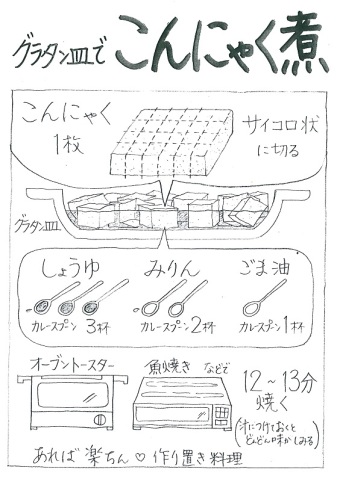 グラタン皿で こんにゃく煮
こんにゃく
1枚
サイコロ状
に切る
グラタン皿
しょうゆ みりん ごま油
カレースプーン 3杯 カレースプーン 2杯 カレースプーン 1杯
オーブントースター 魚焼き などで
12～13分
焼く
(汁につけておくと
どんどん味がしみる)
あれば楽ちん♡作り置き料理